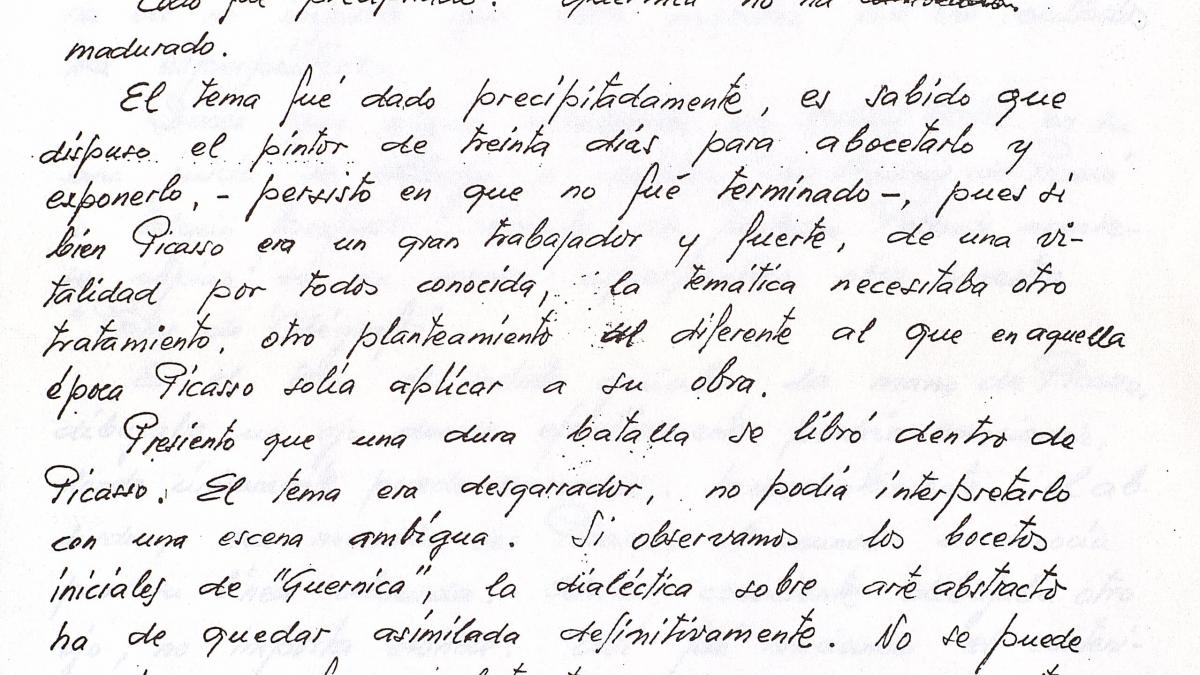 precipitado. Guernica no ha
madurado.
El tema fué dado precipitadamente, es sabido que
dispuso el pintor de treinta días para abocetarlo y
exponerlo, - persisto en que no fué terminado -, pues si
bien Picasso era un gran trabajador y fuerte, de una vi-
talidad por todos conocida, la temática necesitaba otro
tratamiento, otro planteamiento diferente al que en aquella
época Picasso solía aplicar a su obra.
Presiento que una dura batalla se libró dentro de
Picasso. El tema era desgarrador, no podía interpretarlo
con una escena ambígua. Si observamos los bocetos
iniciales de "Guernica", la dialéctica sobre arte abstracto
ha de quedar asimilada definitivamente. No se puede